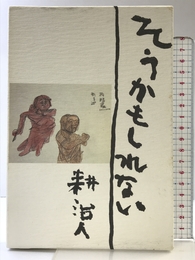 そうかもしれない
耕治人